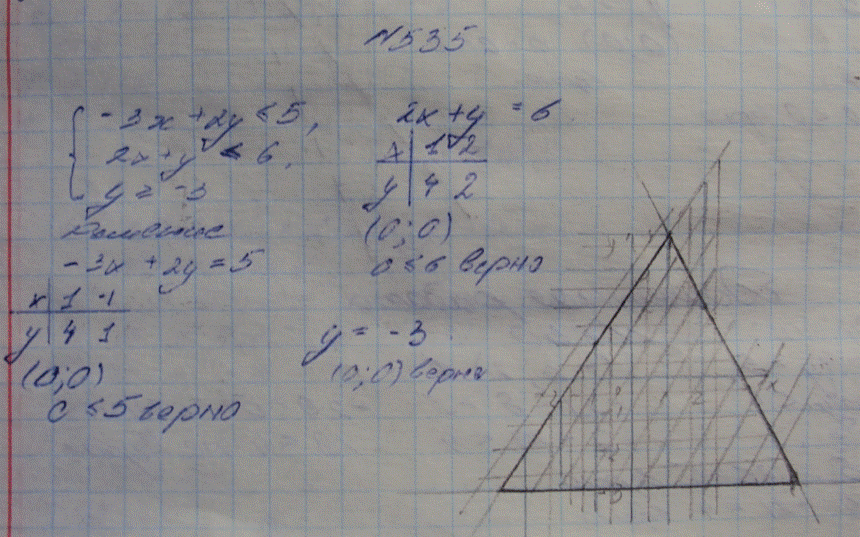 N535
-3x + 2y ≤ 5,
2x + y ≤ 6,
y ≥ -3
Решение
-3x + 2y = 5
x | 1 -1
y | 4 1
(0;0)
0 ≤ 5 верно
2x + y = 6
x | 1 2
y | 4 2
(0;0)
0 ≤ 6 верно
y = -3
(0;0) верно
y
x
-2
-3